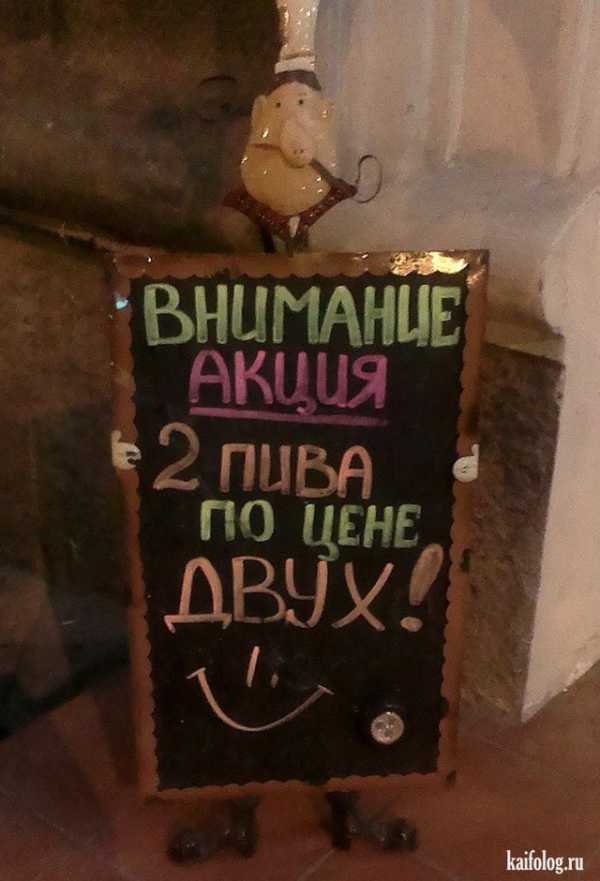 ВНИМАНИЕ
АКЦИЯ
2 ПИВА
ПО ЦЕНЕ
ДВУХ!
kaifolog.ru